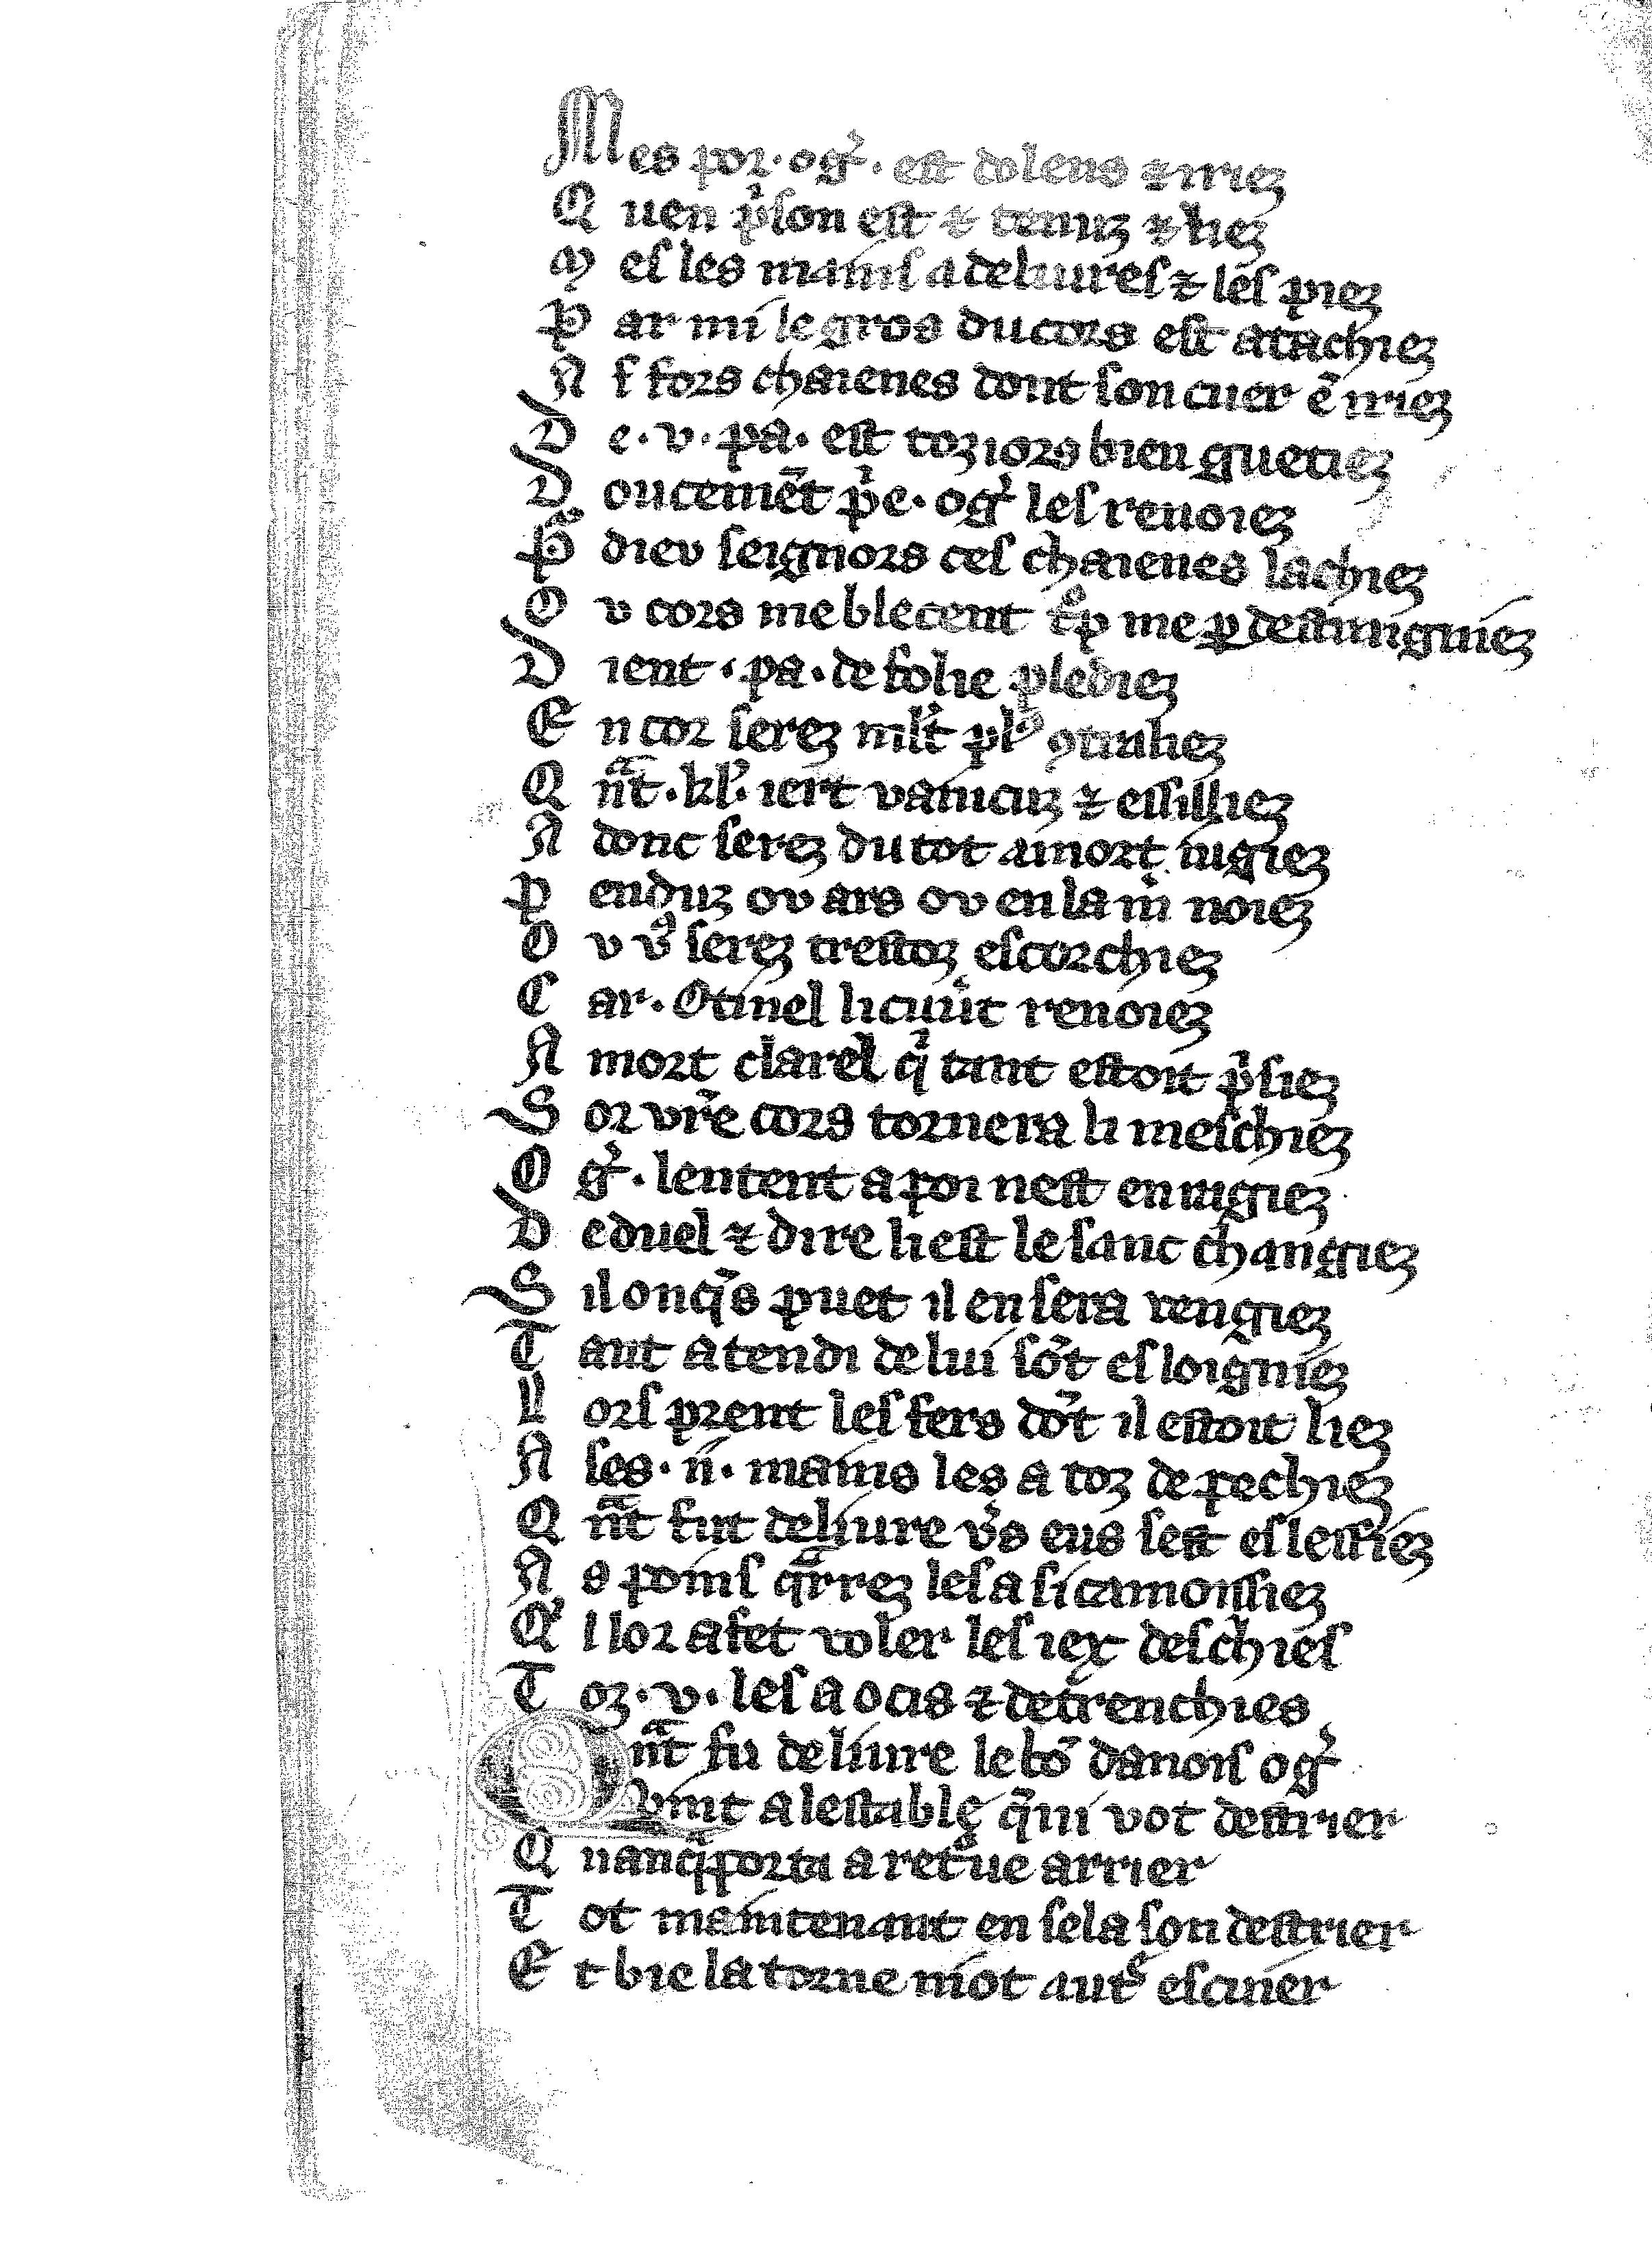 Mes por · og᷒ · est dolens ⁊ irriez
Quen p᷒ſon eſt ⁊ tenuz ⁊ liez
Meſ les mainſ a deliureſ ⁊ leſ piez
Par mi le gros du cors eſt atachiez
A ſ fors chaienes dont ſon cuer ē irriez
De · v · pa · eſt toz iors bien guetiez
Doucemēt p᷒e · og᷒ leſ renoiez
Por dieu ſeignors ceſ chaienes lachiez
Ov cors me blecent me ꝑ deſtreigniez
Dient · pa · de folie plediez
Encor ſerez ml̓t plꝰ ꝯtraliez
Qn̄t · kl̓ · iert vaincuz ⁊ eſſilliez
Adonc ſerez du tot a mort iugiez
Penduz ov ars ov en la m̓ noiez
Ov vꝰ ſerez treſtoz eſcorchiez
Car · Otinel li cuiu̓t renoiez
A mort clarel q̓ tant eſtoit p̓ſiez
Sor vr̄e cors tornera li meſchiez
Og᷒ · lentent a poi neſt enragiez
De duel ⁊ dire li eſt le ſanc changiez
Sil onq̄s puet il en ſera vengiez
Tant atendi de lui ſōt eſloigniez
Lorſ prent leſ fers dōt il eſtoit liez
A ſes · ii · mains les a toz depechiez
Qn̄t fut deliure v̓s eus ſeſt eſleſſiez
As poinſ qᵃrrez leſ a ſi
Qil lor a fet voler leſ iex deſ chieſ
Toz · v · leſ a ocis ⁊ detrenchies
Qn̄t fu deliure le bō danoiſ og᷒
vint a leſtable q̄ni vot deſtrier
Quanq̓ porta a retrue arrier
Tot maintenant en ſela ſon deſtrier
Et bie la torne niot autᵉ eſcuier